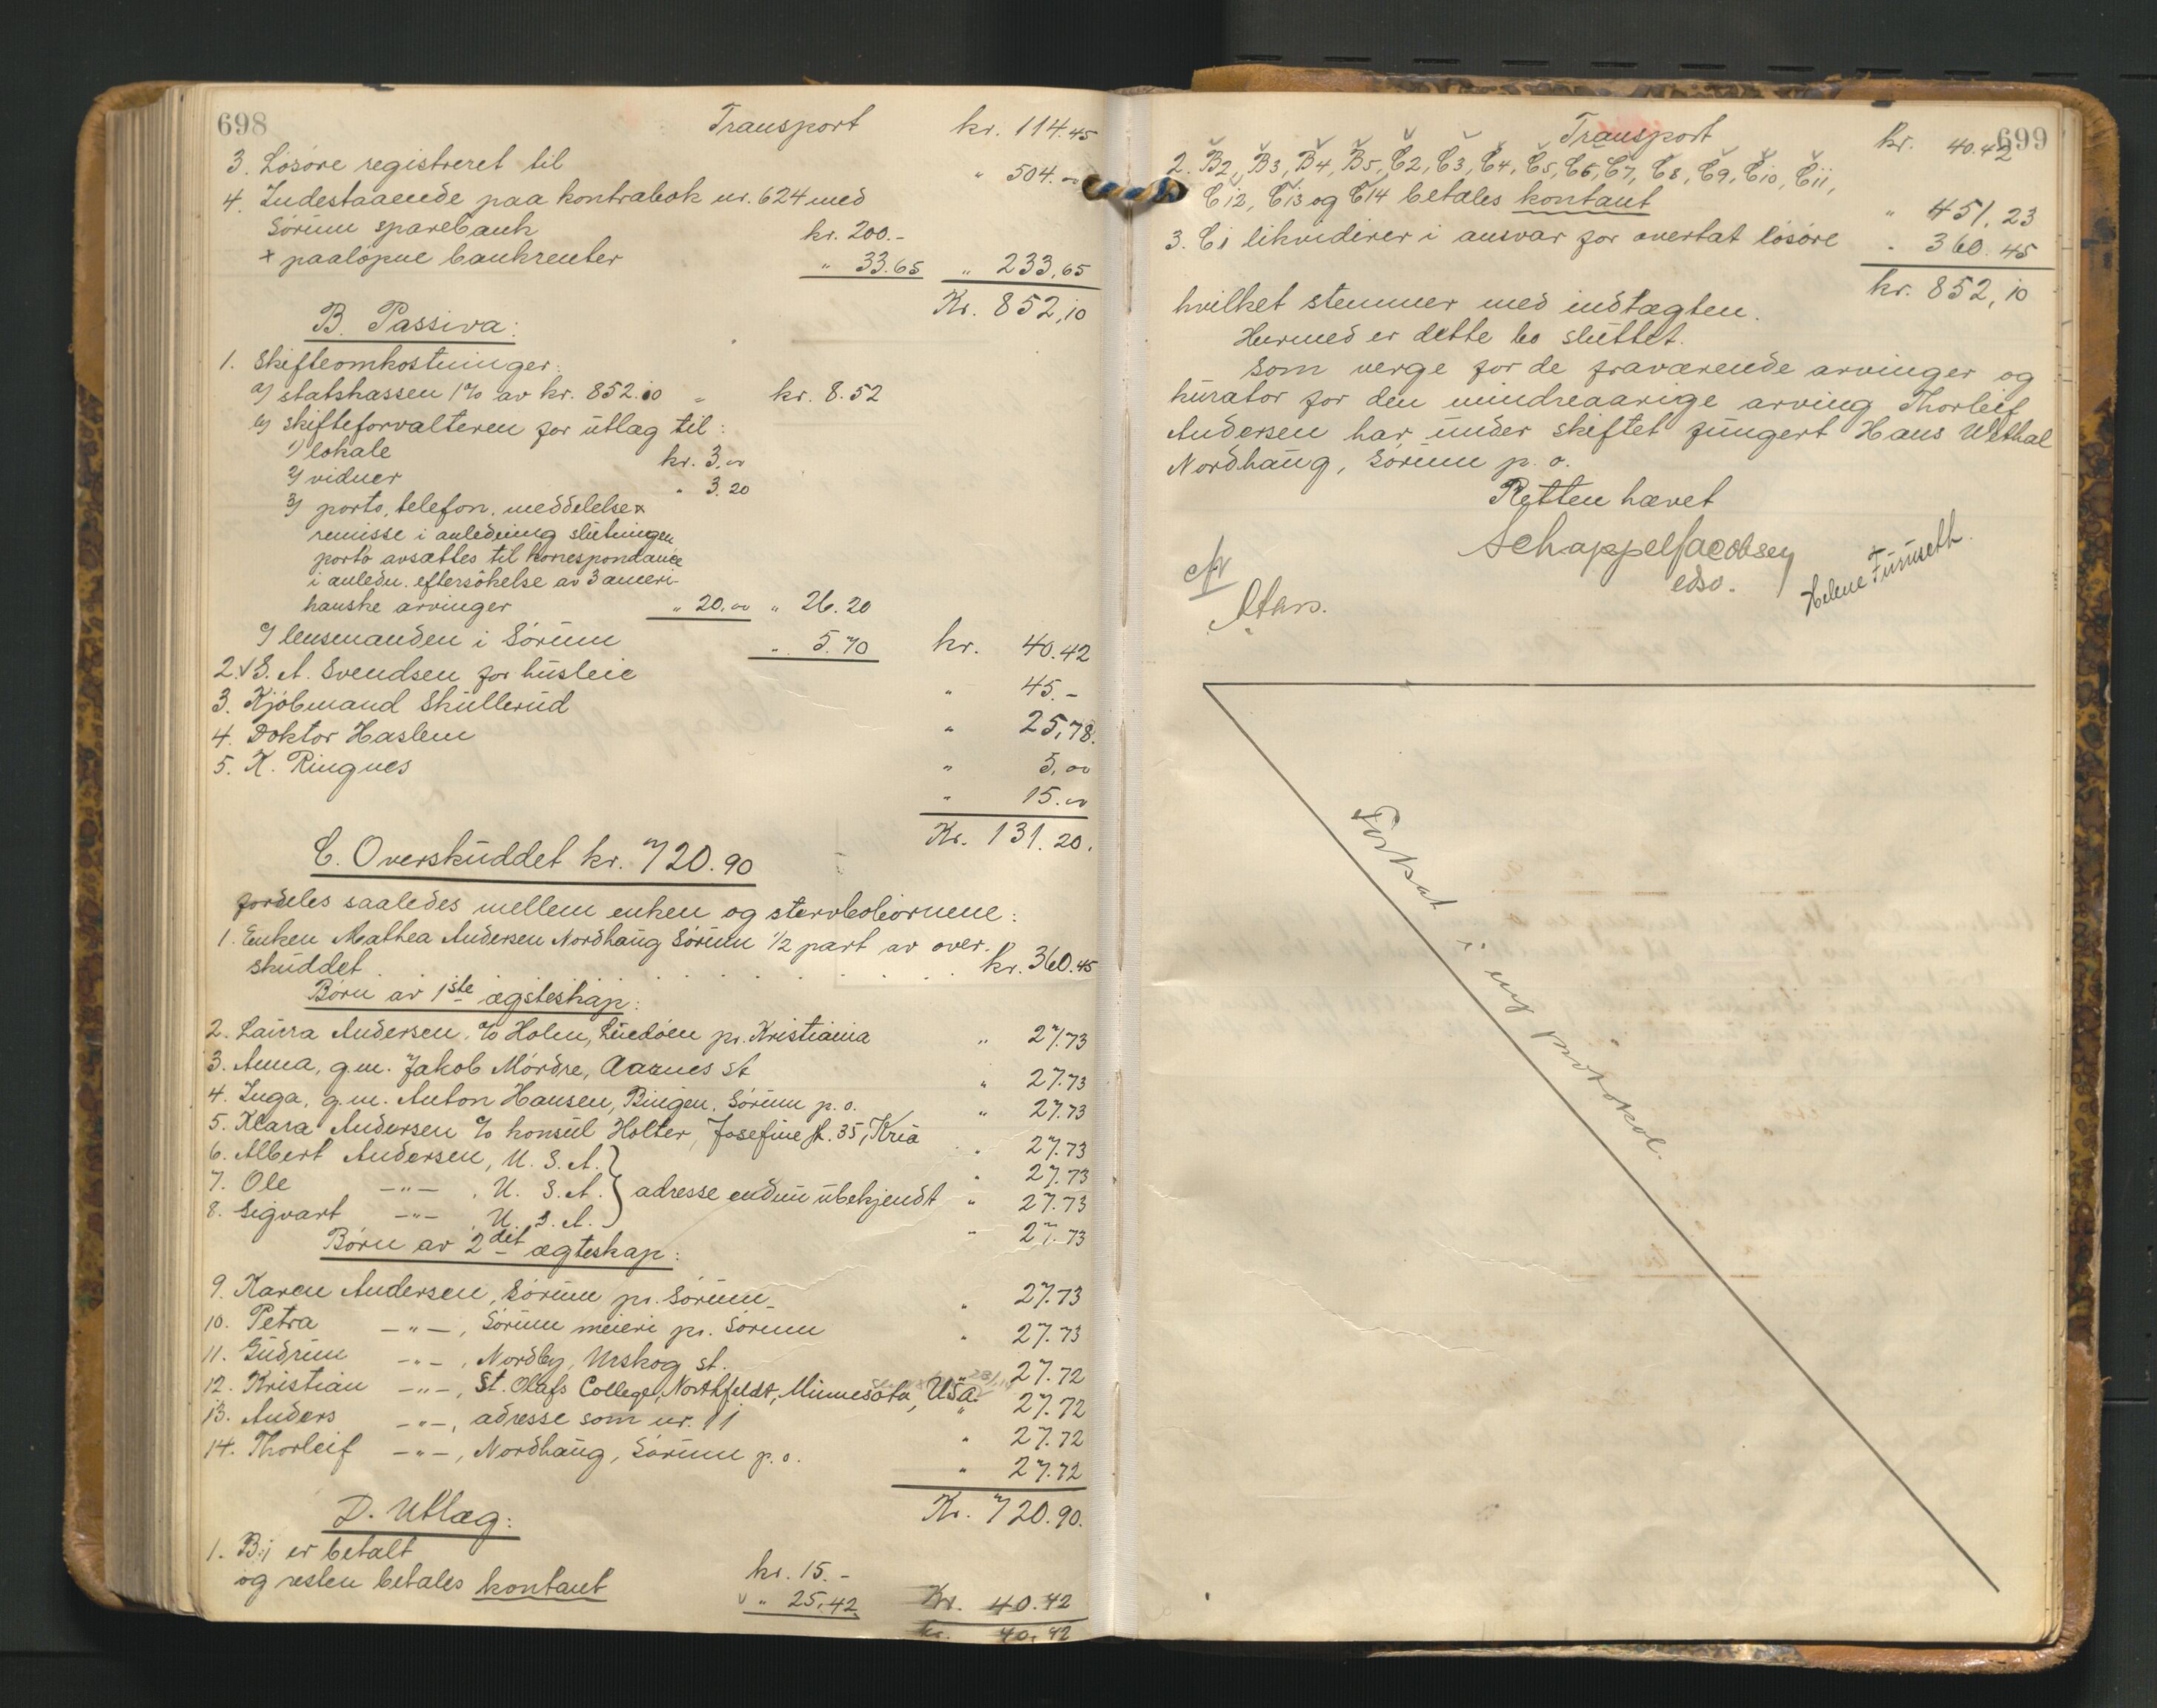 698
Transport kr. 114.45
3. Løsøre registreret til " 504.00
4. Indestaaende paa kontrabok nr. 624 med
Sørum sparebank kr. 200.-
+ paaløpne bankrenter " 33.65 " 233,65
Kr. 852,10
B. Passiva:
1. Skifteomkostninger:
a) statskassen 1% av kr. 852.10 kr. 8.52
b) skifteforvalteren for utlag til:
1) lokale kr. 3,00
2) vidner " 3.20
3) porto, telefon, meddelelse
remisse i anledning slutningen
porto avsættes til korrespondance
i anledn. eftersøkelse av 3 ameri-
kanske arvinger " 20.00 " 26.20
c) lensmanden i Sørum " 5.70 kr. 40.42
2. S. A. Svendsen for husleie " 45.-
3. Kjøbmand Skullerud " 25,78.
4. Doktor Haslem " 5,00
5. K. Ringnes " 15.00
Kr. 131.20.
C. Overskuddet kr. 720.90
fordeles saaledes mellem enken og stervbobørnene:
1. Enken Mathea Andersen Nordhaug Sørum 1/2 part av over-
skuddet kr. 360.45
Børn av 1ste ægteskap:
2. Laura Andersen, c/o Holm, Lindøen pr. Kristiania " 27.73
3. Anna, g.m. Jakob Mørdre, Aarnes st " 27.73
4. Inga, g.m. Anton Hansen, Bingen, Sørum p.o. " 27.73
5. Klara Andersen c/o konsul Holter, Josefine st. 35, Kria " 27.73
6. Albert Andersen, U. S. A. " 27.73
7. Ole —"— , U. S. A. } adresse endnu ubekjendt " 27.73
8. Sigvart —"— , U. S. A. " 27.73
Børn av 2det ægteskap:
9. Karen Andersen, Sørum pr. Sørum " 27.73
10. Petra —"—, Sørum meieri pr. Sørum " 27.73
11. Gudrun —"—, Nordby, Urskog st. " 27.72
12. Kristian —"—, St. Olafs College, Northfeldt, Minnesota, USA. " 27.72
13. Anders —"—, adresse som nr. 11 " 27.72
14. Thorleif —"—, Nordhaug, Sørum p.o. " 27.72
Kr. 720.90.
D. Utlæg:
1. B1 er betalt kr. 15.-
og resten betales kontant " 25.42 Kr. 40.42
kr. 40.42
699
Transport kr. 40.42
2. B2, B3, B4, B5, C2, C3, C4, C5, C6, C7, C8, C9, C10, C11,
C12, C13 og C14 betales kontant " 451,23
3. C1 likviderer i ansvar for overtat løsøre " 360.45
kr. 852,10
hvilket stemmer med indtægten.
Hermed er dette bo sluttet.
Som verge for de fraværende arvinger og
kurator for den mindreaarige arving Thorleif
Andersen har under skiftet fungert Hans Wethal
Nordhaug, Sørum p.o.
Retten hævet
Schappel Jacobsen
edsv. Helene Funuseth
Fortsat i ny protokol.